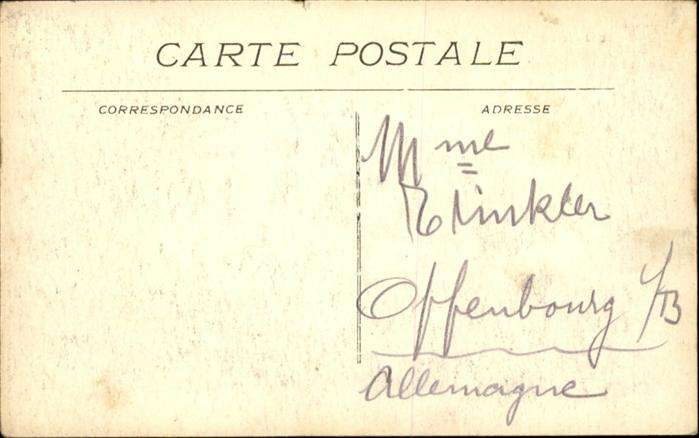 CARTE POSTALE
CORRESPONDANCE
ADRESSE
Mme
Offenbourg i/B
Allemagne